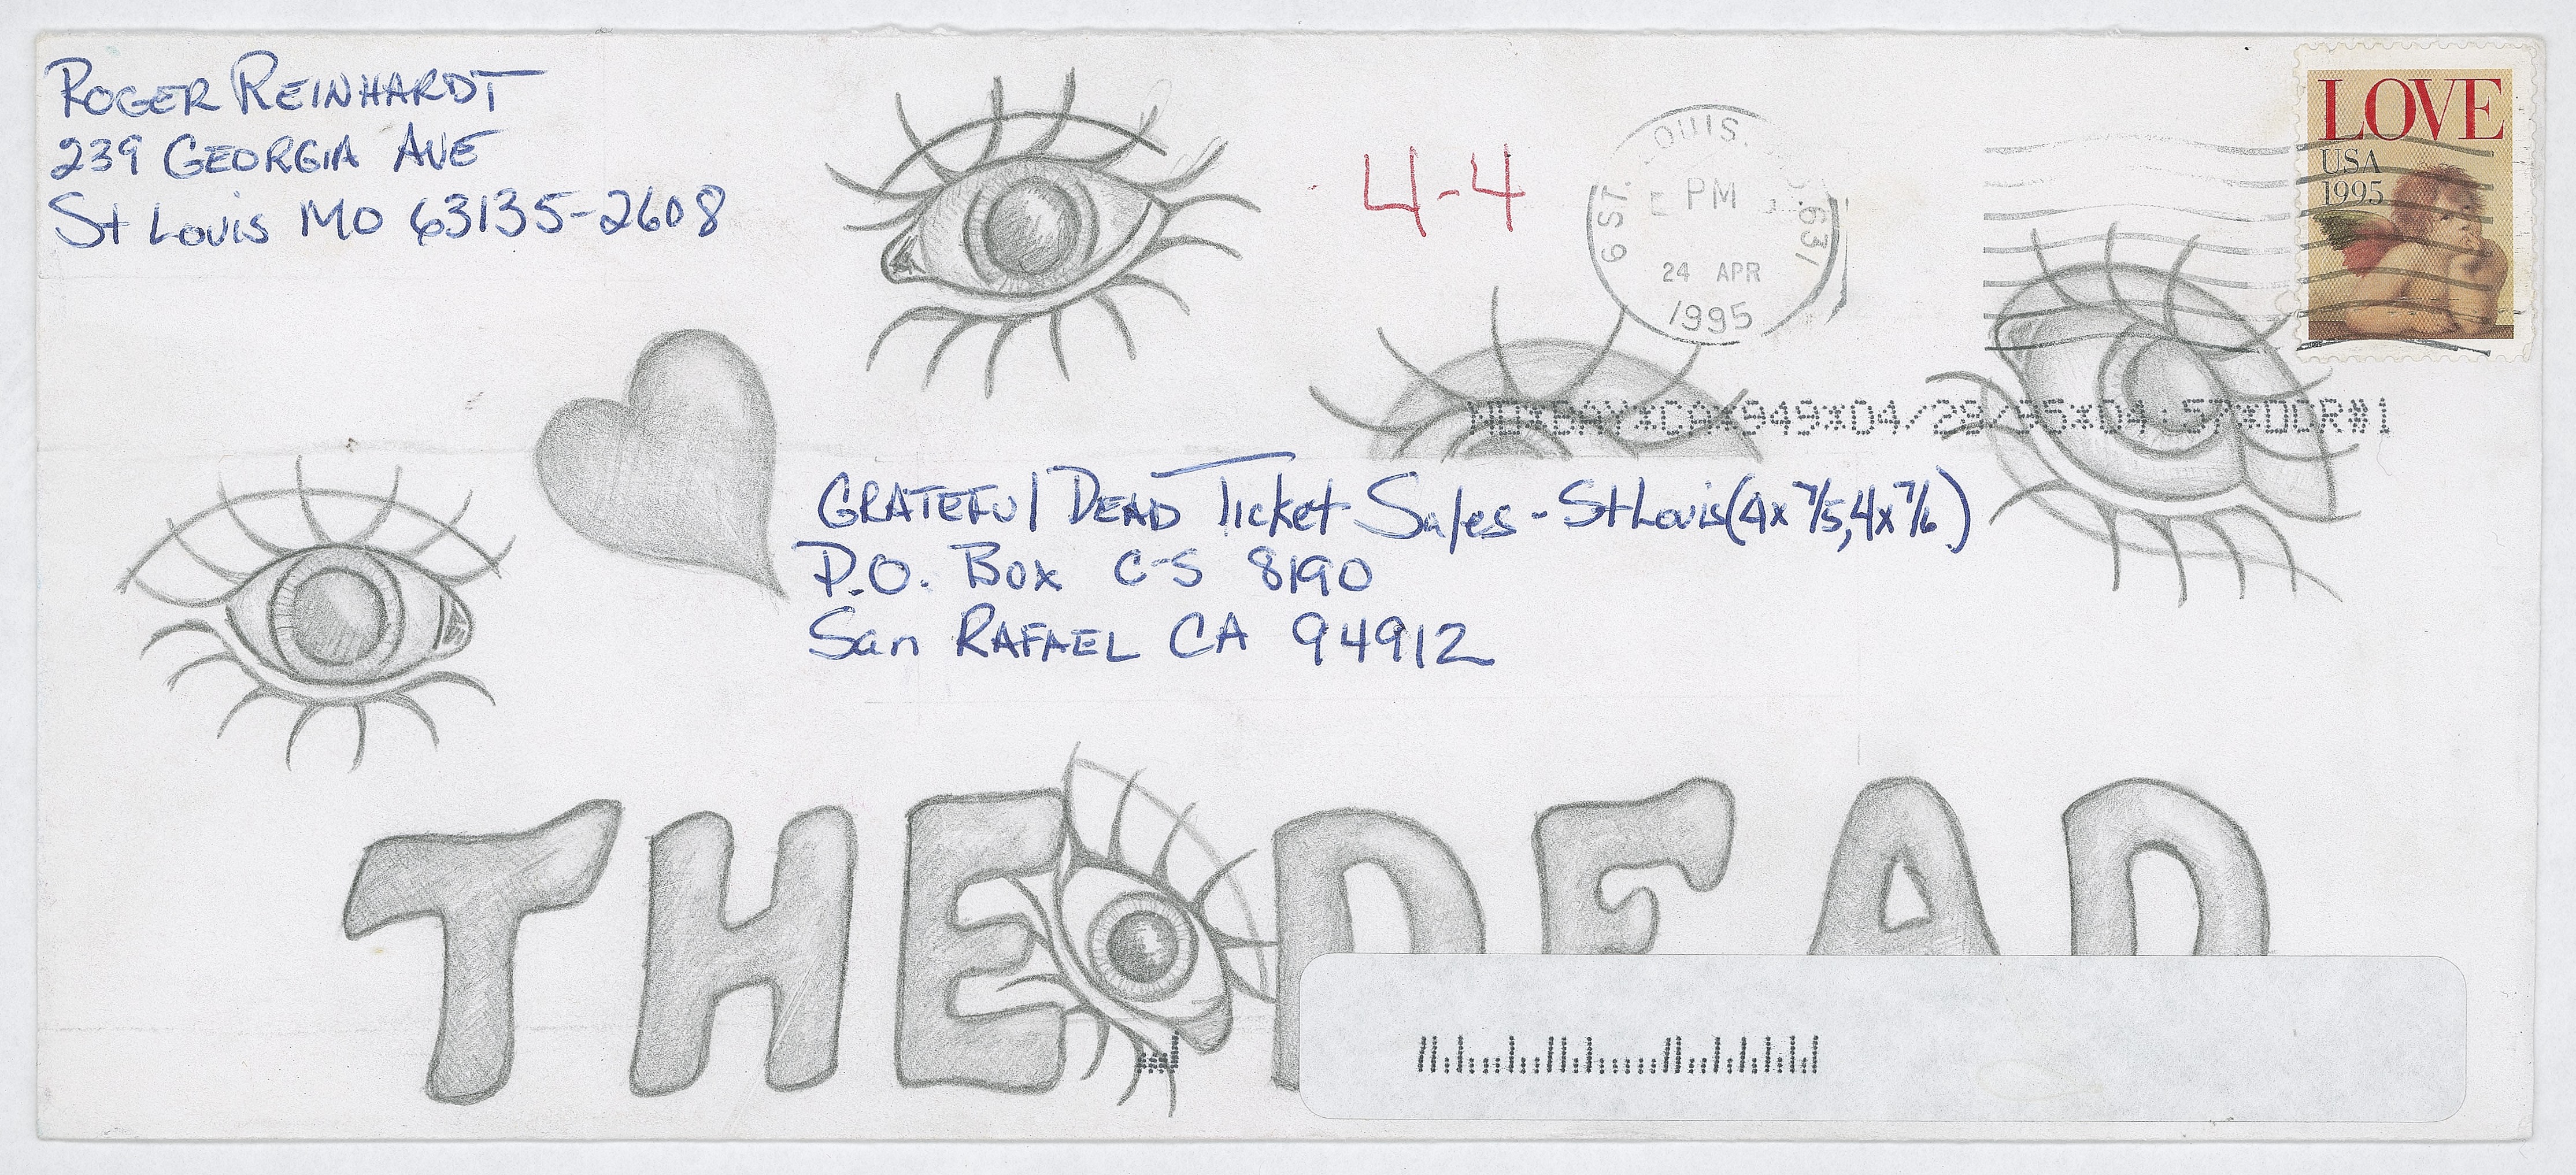 ROGER REINHARDT
239 GEORGIA AVE
St Louis MO 63135-2608
4-4
ST. LOUIS. MO. 631
PM
24 APR
1995
LOVE
USA
1995
NB*BAY*CA*949*04/29/95*04:57*DDR#1
GRATEFUL DEAD Ticket Sales - St Louis (4x 7/5, 4x 7/6)
P.O. Box C-S 8190
San RAFAEL CA 94912
THE DEAD